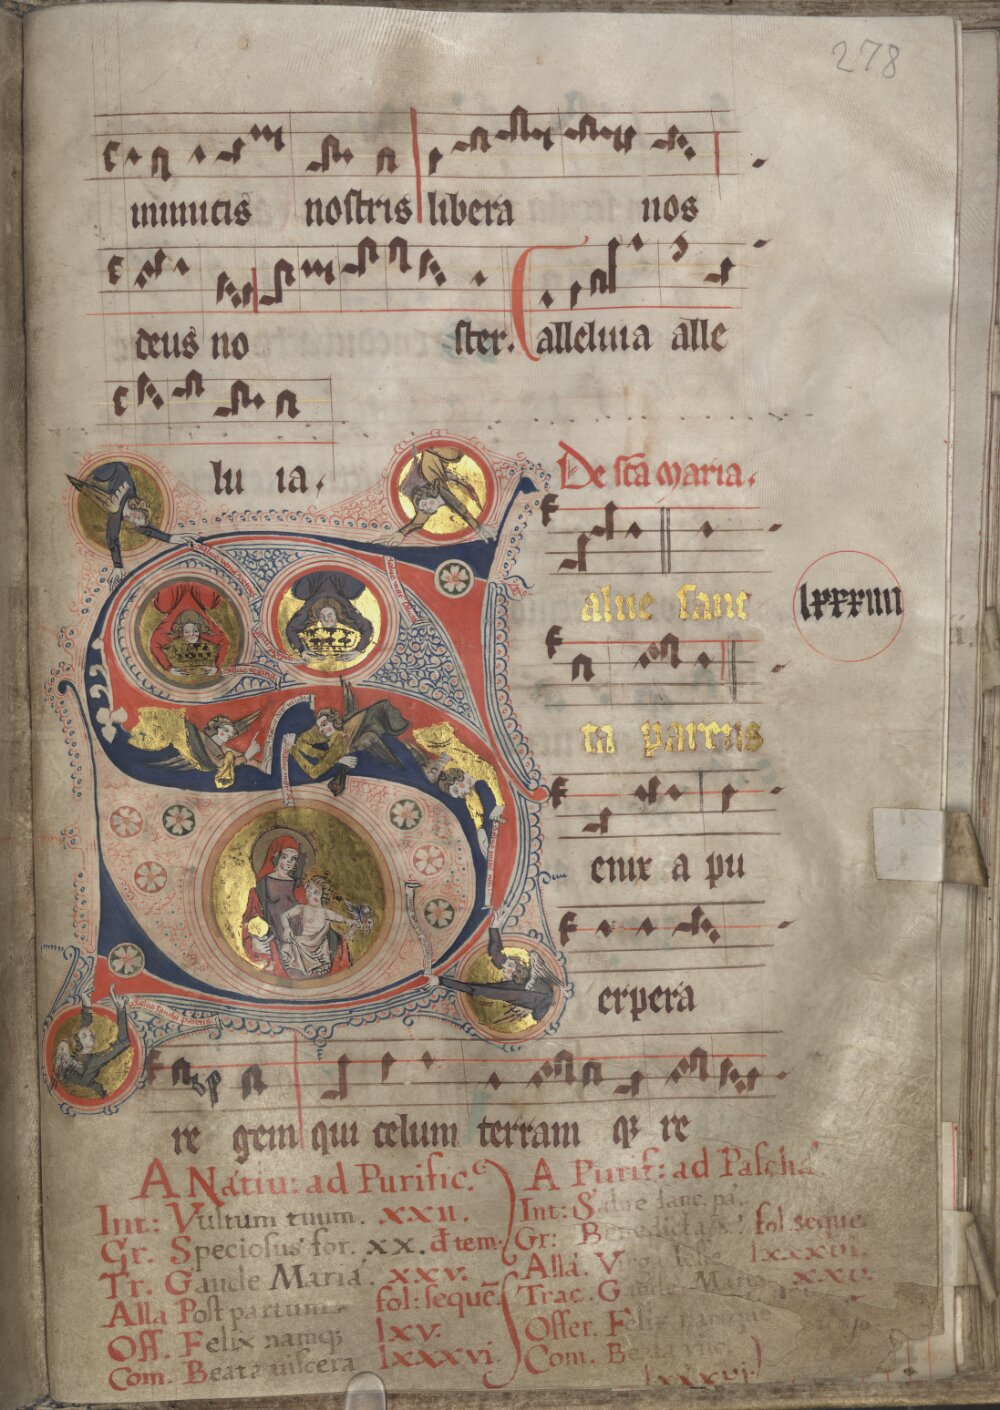 278
inimicis nostris libera nos
deus no ster. alleluia alle
lu ia.
De sca maria.
alue sanc
lxxxiiii
ta parens
enix a pu
erpera
re gem qui celum terram q; re
A Natiu: ad Purific.
Int: Vultum tuum. XXII.
Gr. Speciosus for. XX. d tem.
Tr. Gaude Maria. XXV.
Alla Post partum fol: seque.
Off. Felix namq; lXV.
Com. Beata viscera lXXXVI.
A Purif: ad Pascha.
Int: Salue sanc. pa.
Gr: Benedicta & fol. seque.
Alla. Virga Iesse lxxxvi.
Trac. Gaude Maria XXV.
Offer. Felix namque
Com. Beata visc.
lxxxvi.